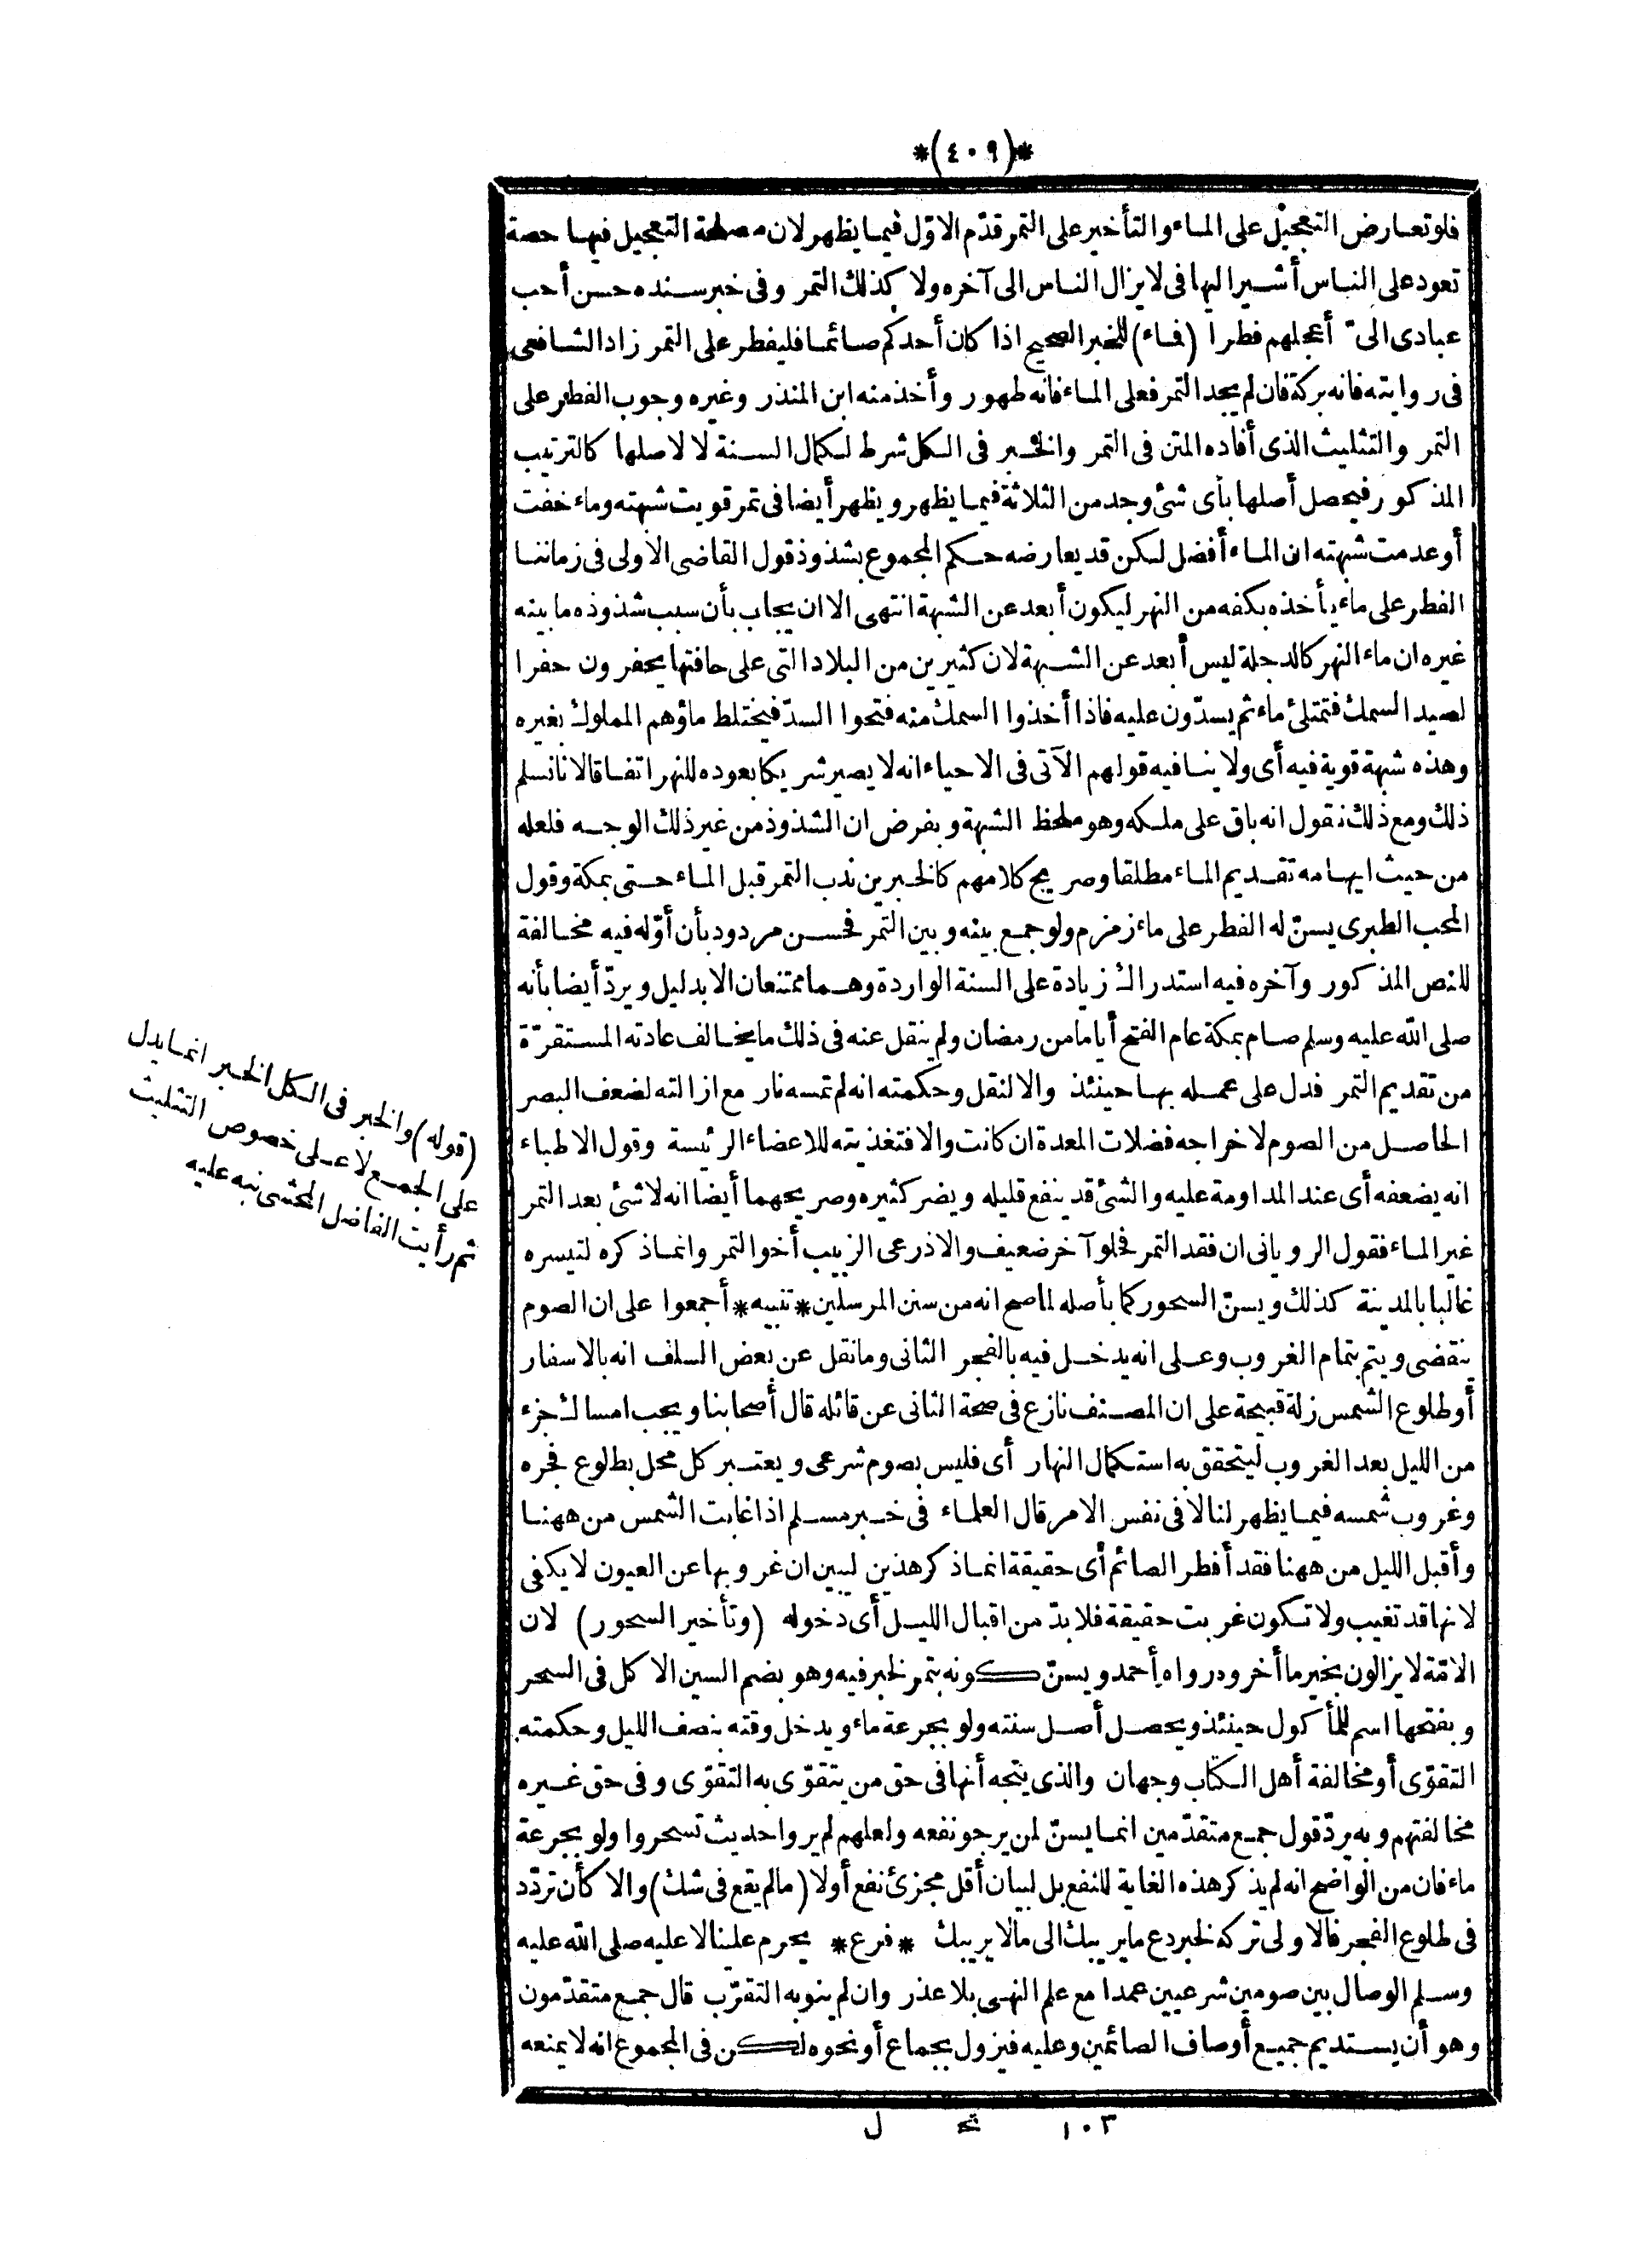 *(٤٠٩)*
فلو تعارض التعجيل على الماء والتأخير على التمر قدّم الاوّل فيما يظهر لان مصلحة التعجيل فيها حصة
تعود على الناس أشير اليها فى لا يزال الناس الى آخره ولا كذلك التمر وفى خبر سنده حسن أحب
عبادى الىّ أعجلهم فطرا (فماء) للخبر الصحيح اذا كان أحدكم صائما فليفطر على التمر زاد الشافعى
فى روايته فانه بركة فان لم يجد التمر فعلى الماء فانه طهور وأخذ منه ابن المنذر وغيره وجوب الفطر على
التمر والتثليث الذى أفاده المتن فى التمر والخبر فى الكل شرط لكمال السنة لا لاصلها كالترتيب
المذكور فيحصل أصلها بأى شئ وجد من الثلاثة فيما يظهر ويظهر أيضا فى تمر قويت شبهته وماء خفت
أو عدمت شبهته ان الماء أفضل لكن قد يعارضه حكم المجموع بشذوذ قول القاضى الاولى فى زماننا
الفطر على ماء يأخذه بكفه من النهر ليكون أبعد عن الشبهة انتهى الا ان يجاب بأن سبب شذوذه ما بينه
غيره ان ماء النهر كالدجلة ليس أبعد عن الشبهة لان كثيرين من البلاد التى على حافتها يحفرون حفرا
لصيد السمك فتمتلئ ماء ثم يسدّون عليه فاذا أخذوا السمك منه فتحوا السدّ فيختلط ماؤهم المملوك بغيره
وهذه شبهة قوية فيه أى ولا ينافيه قولهم الآتى فى الاحياء انه لا يصير شريكا بعوده للنهر اتفاقا لانا نسلم
ذلك ومع ذلك نقول انه باق على ملكه وهو ملحظ الشبهة وبفرض ان الشذوذ من غير ذلك الوجه فلعله
من حيث ايهامه تقديم الماء مطلقا وصريح كلامهم كالخبرين ندب التمر قبل الماء حتى بمكة وقول
المحب الطبرى يسنّ له الفطر على ماء زمزم ولو جمع بينه وبين التمر فحسن مردود بأن أوّله فيه مخالفة
للنص المذكور وآخره فيه استدراك زيادة على السنة الواردة وهما ممتنعان الا بدليل ويردّ أيضا بأنه
صلى الله عليه وسلم صام بمكة عام الفتح أياما من رمضان ولم ينقل عنه فى ذلك ما يخالف عادته المستقرّة
من تقديم التمر فدل على عمله بها حينئذ والا لنقل وحكمته انه لم تمسه نار مع ازالته لضعف البصر
الحاصل من الصوم لاخراجه فضلات المعدة ان كانت والا فتغذيته للاعضاء الرئيسة وقول الاطباء
انه يضعفه أى عند المداومة عليه والشئ قد ينفع قليله ويضر كثيره وصريحهما أيضا انه لا شئ بعد التمر
غير الماء فقول الرويانى ان فقد التمر فحلو آخر ضعيف والاذرعى الزبيب أخو التمر وانما ذكره لتيسره
غالبا بالمدينة كذلك ويسنّ السحور كما بأصله لما صح انه من سنن المرسلين *تنبيه* أجمعوا على ان الصوم
ينقضى ويتم بتمام الغروب وعلى انه يدخل فيه بالفجر الثانى وما نقل عن بعض السلف انه بالاسفار
أو طلوع الشمس زلة قبيحة على ان المصنف نازع فى صحة الثانى عن قائله قال أصحابنا ويجب امساك جزء
من الليل بعد الغروب ليتحقق به استكمال النهار أى فليس بصوم شرعى ويعتبر كل محل بطلوع فجره
وغروب شمسه فيما يظهر لنا لا فى نفس الامر قال العلماء فى خبر مسلم اذا غابت الشمس من ههنا
وأقبل الليل من ههنا فقد أفطر الصائم أى حقيقة انما ذكر هذين ليبين ان غروبها عن العيون لا يكفى
لانها قد تغيب ولا تكون غربت حقيقة فلا بدّ من اقبال الليل أى دخوله (وتأخير السحور) لان
الامّة لا يزالون بخير ما أخروه رواه أحمد ويسنّ كونه بتمر لخبر فيه وهو بضم السين الاكل فى السحر
وبفتحها اسم للمأكول حينئذ ويحصل أصل سنته ولو بجرعة ماء ويدخل وقته بنصف الليل وحكمته
التقوّى أو مخالفة أهل الكتاب وجهان والذى يتجه أنها فى حق من يتقوّى به التقوّى وفى حق غيره
مخالفتهم وبه يردّ قول جمع متقدّمين انما يسنّ لمن يرجو نفعه ولعلهم لم يروا حديث تسحروا ولو بجرعة
ماء فان من الواضح انه لم يذكر هذه الغاية للنفع بل لبيان أقل مجزئ نفع أولا (ما لم يقع فى شك) والا كأن تردّد
فى طلوع الفجر فالاولى تركه لخبر دع ما يريبك الى مالا يريبك *فرع* يحرم علينا لا عليه صلى الله عليه
وسلم الوصال بين صومين شرعيين عمدا مع علم النهى بلا عذر وان لم ينو به التقرّب قال جمع متقدّمون
وهو أن يستديم جميع أوصاف الصائمين وعليه فيزول بجماع أو نحوه لكن فى المجموع انه لا يمنعه
١٠٣ تح ل
(قوله) والخبر فى الكل الخبر انما يدل
على الجمع لا على خصوص التثليث
ثم رأيت الفاضل المحشى نبه عليه